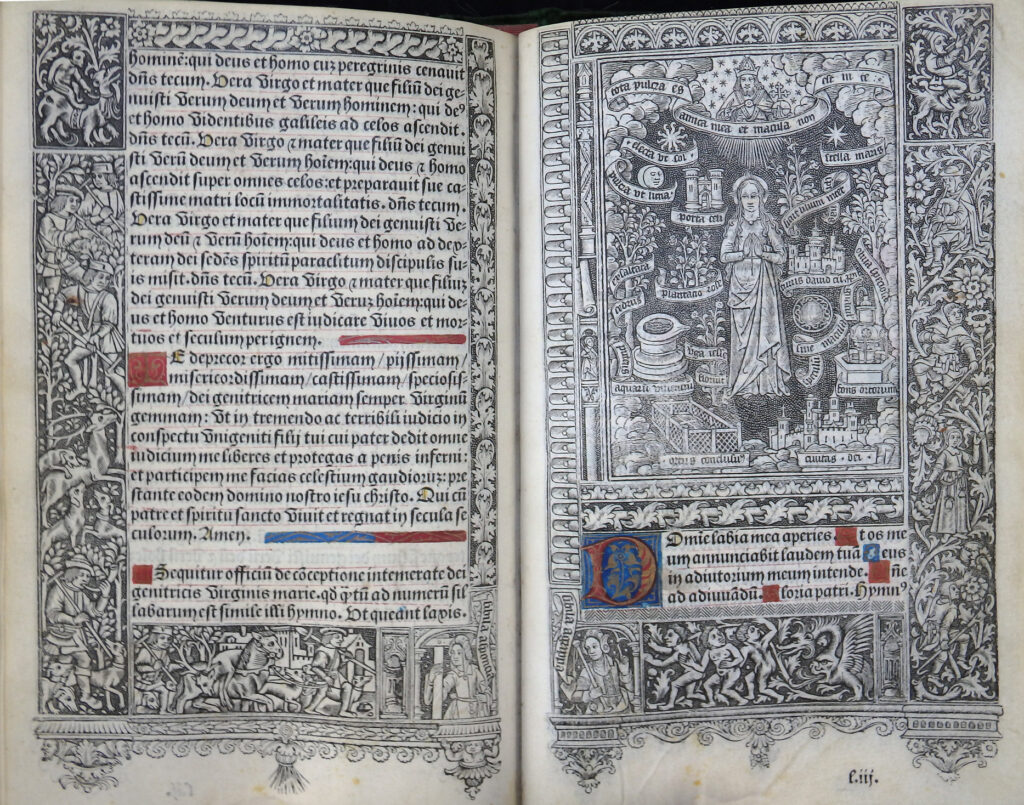 hominē: qui deus et homo cuz peregrinis cenauit
dn̄s tecum. Vera Virgo et mater que filiū dei ge-
nuisti Verum deum et Verum hominem: qui deꝰ
et homo Videntibus galileis ad celos ascendit.
dn̄s tecū. Vera Virgo ⁊ mater que filiū dei genui
sti Verū deum et Verum hoīem: qui deus ⁊ homo
ascendit super omnes celos: et preparauit sue ca-
stissime matri locū immortalitatis. dn̄s tecum.
Vera Virgo et mater que filium dei genuisti Ve-
rum deū ⁊ Verū hoīem: qui deus et homo ad dex-
teram dei sedēs spiritū paraclitum discipulis su-
is misit. dn̄s tecū. Vera Virgo ⁊ mater que filiuz
dei genuisti Verum deum et Veruz hoīem: qui de-
us et homo Venturus est iudicare Viuos et mor-
tuos et seculum per ignem.
TE deprecor ergo mitissimam / pijssimam /
misericordissimam / castissimam / speciosis-
simam / dei genitricem mariam semper Virginū
gemmam: Vt in tremendo ac terribili iudicio in
conspectu Vnigeniti filij tui cui pater dedit omne
iudicium me liberes et protegas a penis inferni:
et participem me facias celestium gaudioruz: pre-
stante eodem domino nostro iesu christo. Qui cū
patre et spiritu sancto Viuit et regnat in secula se-
culorum. Amen.
Sequitur officiū de cōceptione intemerate dei
genitricis Virginis marie. qd̄ q̄tū ad numerū sil-
labarum est simile illi hymno. Vt queant laxis.
tota pulcra es
amica mea et macula non
est in te:
electa vt sol
stella maris
pulcra vt luna
porta celi
sicut lilium inter
exaltata
cedrus
plantatio rose
turris dauid cū
virga iesse
floruit
puteus
aquarū viuentiū
speculū
sine macula
fons ortorum
ortus conclusus
ciuitas dei
Domine labia mea aperies. Et os me-
um annunciabit laudem tuā. Deus
in adiutorium meum intende. Dn̄e
ad adiuuādū. Gloria patri. Hymnꝰ
sibilla
l.iij.